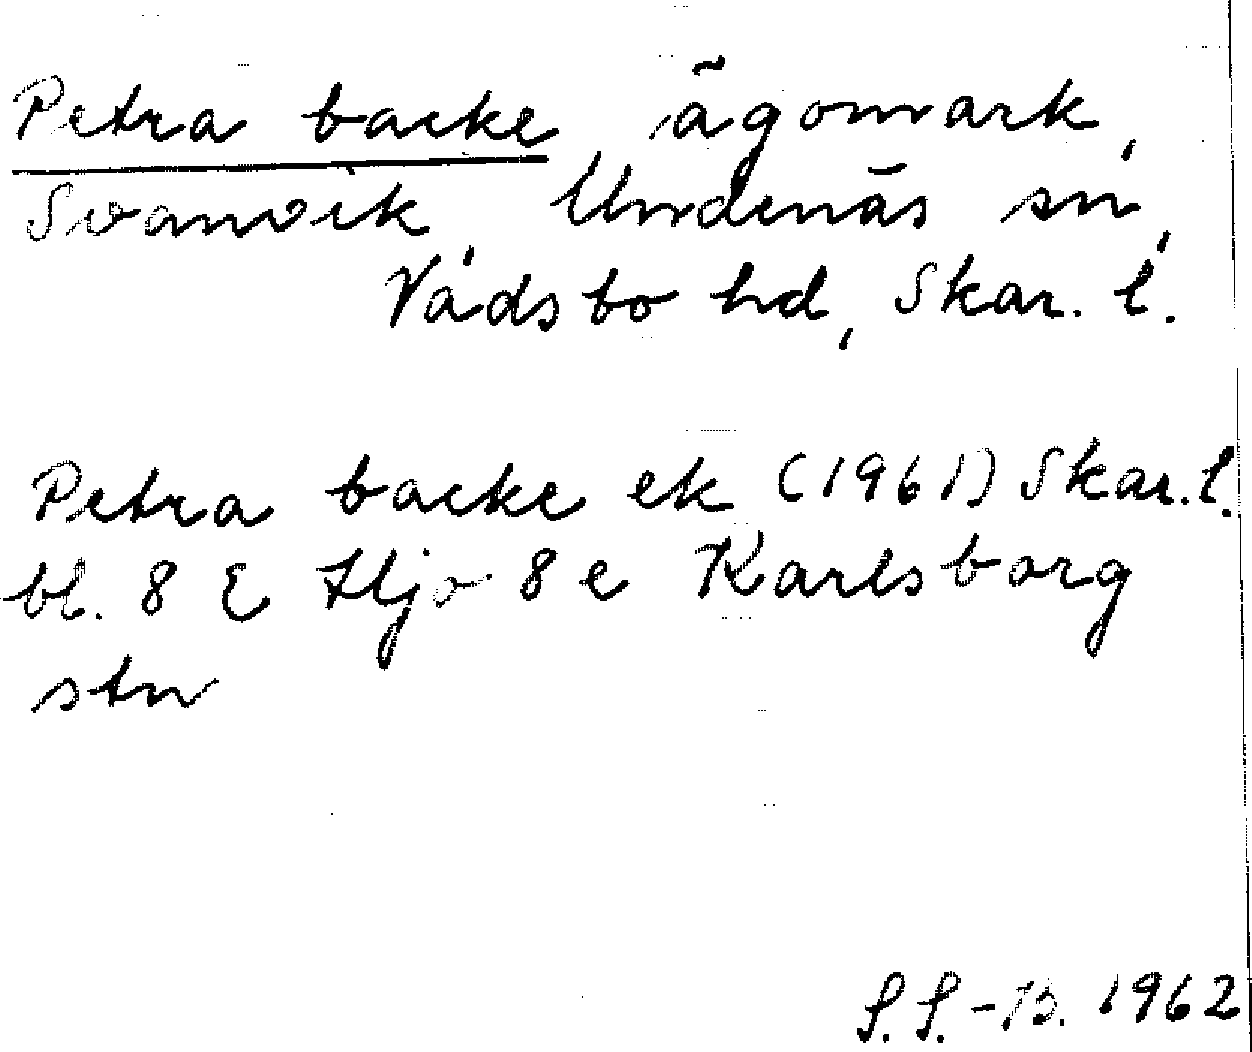 Petra backe, ägomark,
Svanvik, Undenäs sn,
Vadsbo hd, Skar. l.
Petra backe ek (1961) Skar. l.
bl. 8 E Hjo 8 e Karlsborg
stn
S.S.-B. 1962